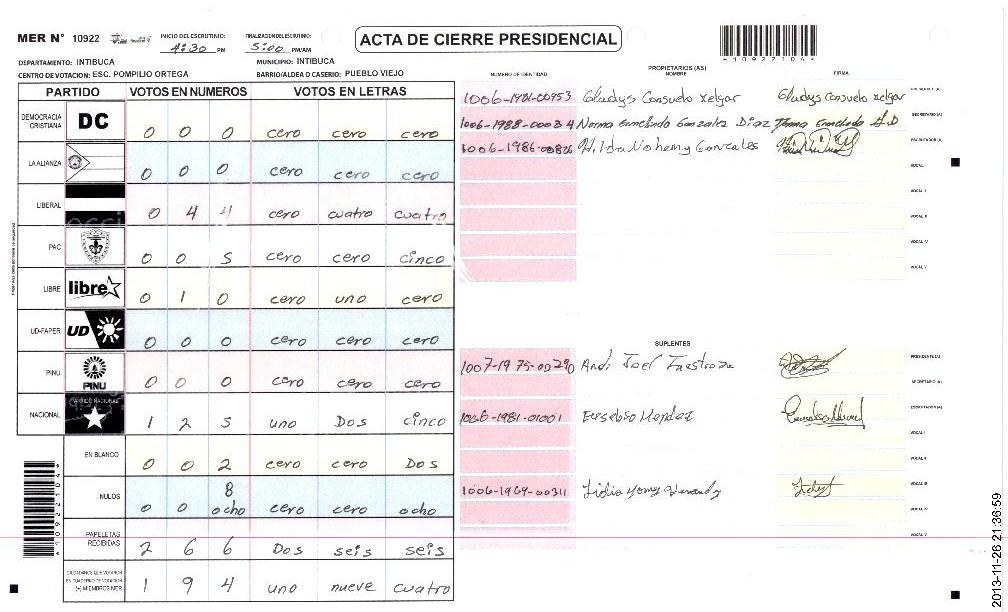 MER N° 10922
INICIO DEL ESCRUTINIO: 4:30 PM
FINALIZACION DEL ESCRUTINIO: 5:00 PM/AM
ACTA DE CIERRE PRESIDENCIAL
*10922104*
DEPARTAMENTO: INTIBUCA
MUNICIPIO: INTIBUCA
CENTRO DE VOTACION: ESC. POMPILIO ORTEGA
BARRIO/ALDEA O CASERIO: PUEBLO VIEJO
PARTIDO VOTOS EN NUMEROS VOTOS EN LETRAS
DEMOCRACIA CRISTIANA DC 0 0 0 cero cero cero
LA ALIANZA 0 0 0 cero cero cero
LIBERAL 0 4 4 cero cuatro cuatro
PAC 0 0 5 cero cero cinco
LIBRE libre 0 1 0 cero uno cero
UD-FAPER UD 0 0 0 cero cero cero
PINU PINU 0 0 0 cero cero cero
NACIONAL 1 2 5 uno Dos cinco
EN BLANCO 0 0 2 cero cero Dos
8
NULOS 0 0 ocho cero cero ocho
PAPELETAS RECIBIDAS 2 6 6 Dos seis seis
CIUDADANOS QUE VOTARON EN CUADERNO DE VOTACION (+) MIEMBROS MER 1 9 4 uno nueve cuatro
PROPIETARIOS (AS)
NUMERO DE IDENTIDAD NOMBRE FIRMA
1006-1981-00953 Gladys Consuelo Gladys Consuelo PRESIDENTE (A)
1006-1988-00034 Norma Ermelinda Gonzalez Diaz SECRETARIO (A)
1006-1986-00826 Hilda Nohemy Gonzales ESCRUTADOR (A)
VOCAL I
VOCAL II
VOCAL III
VOCAL IV
VOCAL V
SUPLENTES
1007-1975-00290 Andi Joel PRESIDENTE (A)
SECRETARIO (A)
1006-1981-01001 Eusebio Mendez ESCRUTADOR (A)
VOCAL I
VOCAL II
1006-1969-00311 Lidia VOCAL III
VOCAL IV
VOCAL V
2013-11-26 21:36:59